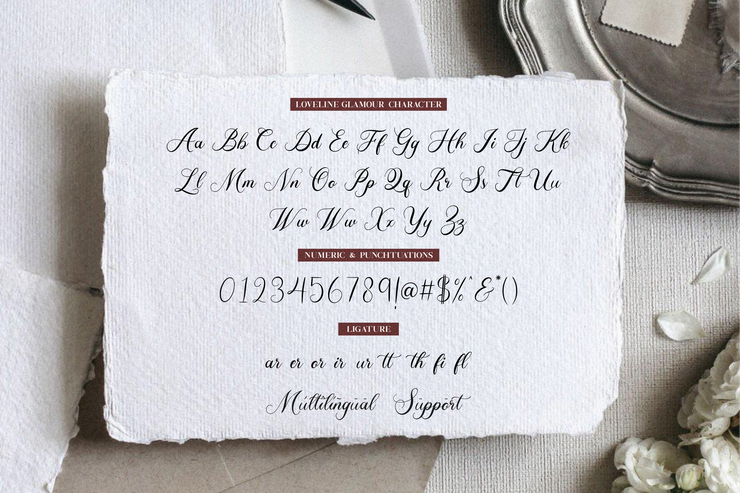 LOVELINE GLAMOUR CHARACTER
Aa Bb Cc Dd Ee Ff Gg Hh Ii Jj Kk
Ll Mm Nn Oo Pp Qq Rr Ss Tt Uu
Ww Ww Xx Yy Zz
NUMERIC & PUNCHTUATIONS
0123456789!@#$%^&*()
LIGATURE
ar er or ir ur tt th fi fl
Múltílīngùal Sùppōrt